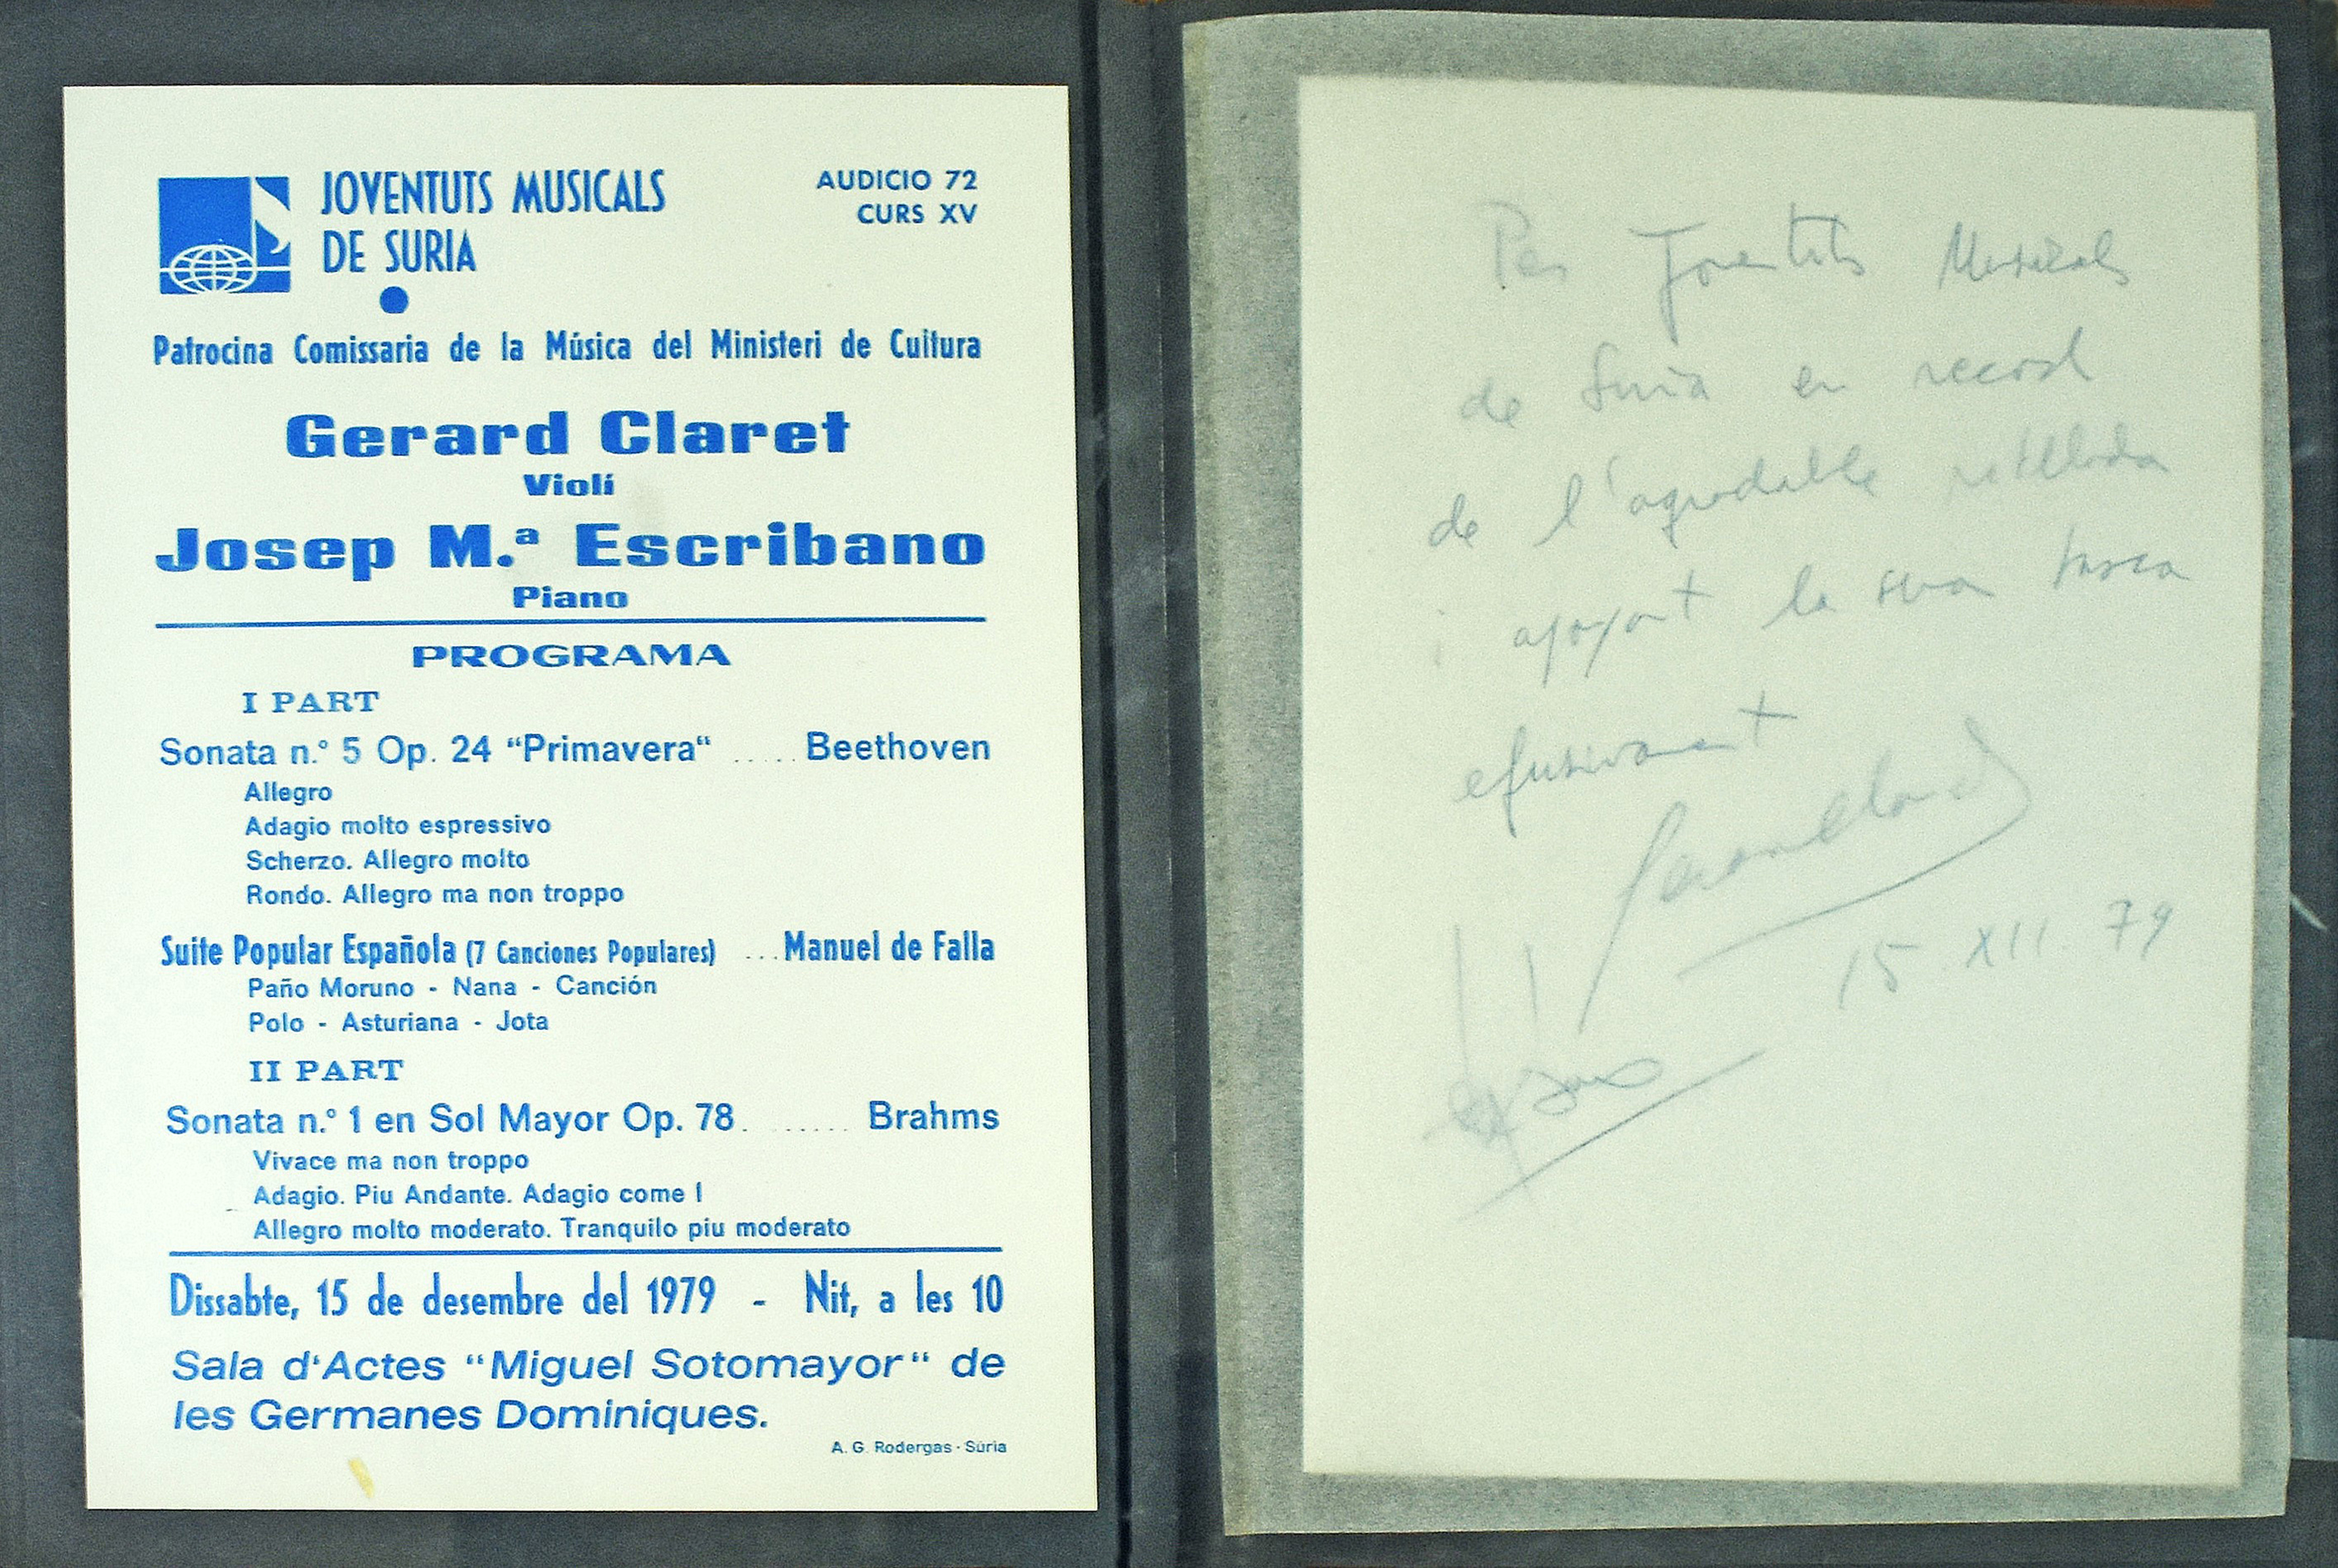 JOVENTUTS MUSICALS
DE SURIA
AUDICIO 72
CURS XV
Patrocina Comissaria de la Música del Ministeri de Cultura
Gerard Claret
Violí
Josep M.ª Escribano
Piano
PROGRAMA
I PART
Sonata n.° 5 Op. 24 “Primavera“ ..... Beethoven
Allegro
Adagio molto espressivo
Scherzo. Allegro molto
Rondo. Allegro ma non troppo
Suite Popular Española (7 Canciones Populares) ... Manuel de Falla
Paño Moruno - Nana - Canción
Polo - Asturiana - Jota
II PART
Sonata n.° 1 en Sol Mayor Op. 78. ...... Brahms
Vivace ma non troppo
Adagio. Piu Andante. Adagio come I
Allegro molto moderato. Tranquilo piu moderato
Dissabte, 15 de desembre del 1979 - Nit, a les 10
Sala d‘Actes “Miguel Sotomayor“ de
les Germanes Dominiques.
A. G. Rodergas - Súria
Per Joventuts Musicals
de Suria en record
de l'agradable vetllada
i apoyant la seva tasca
efusivament
Gerard Claret
15 XII 79